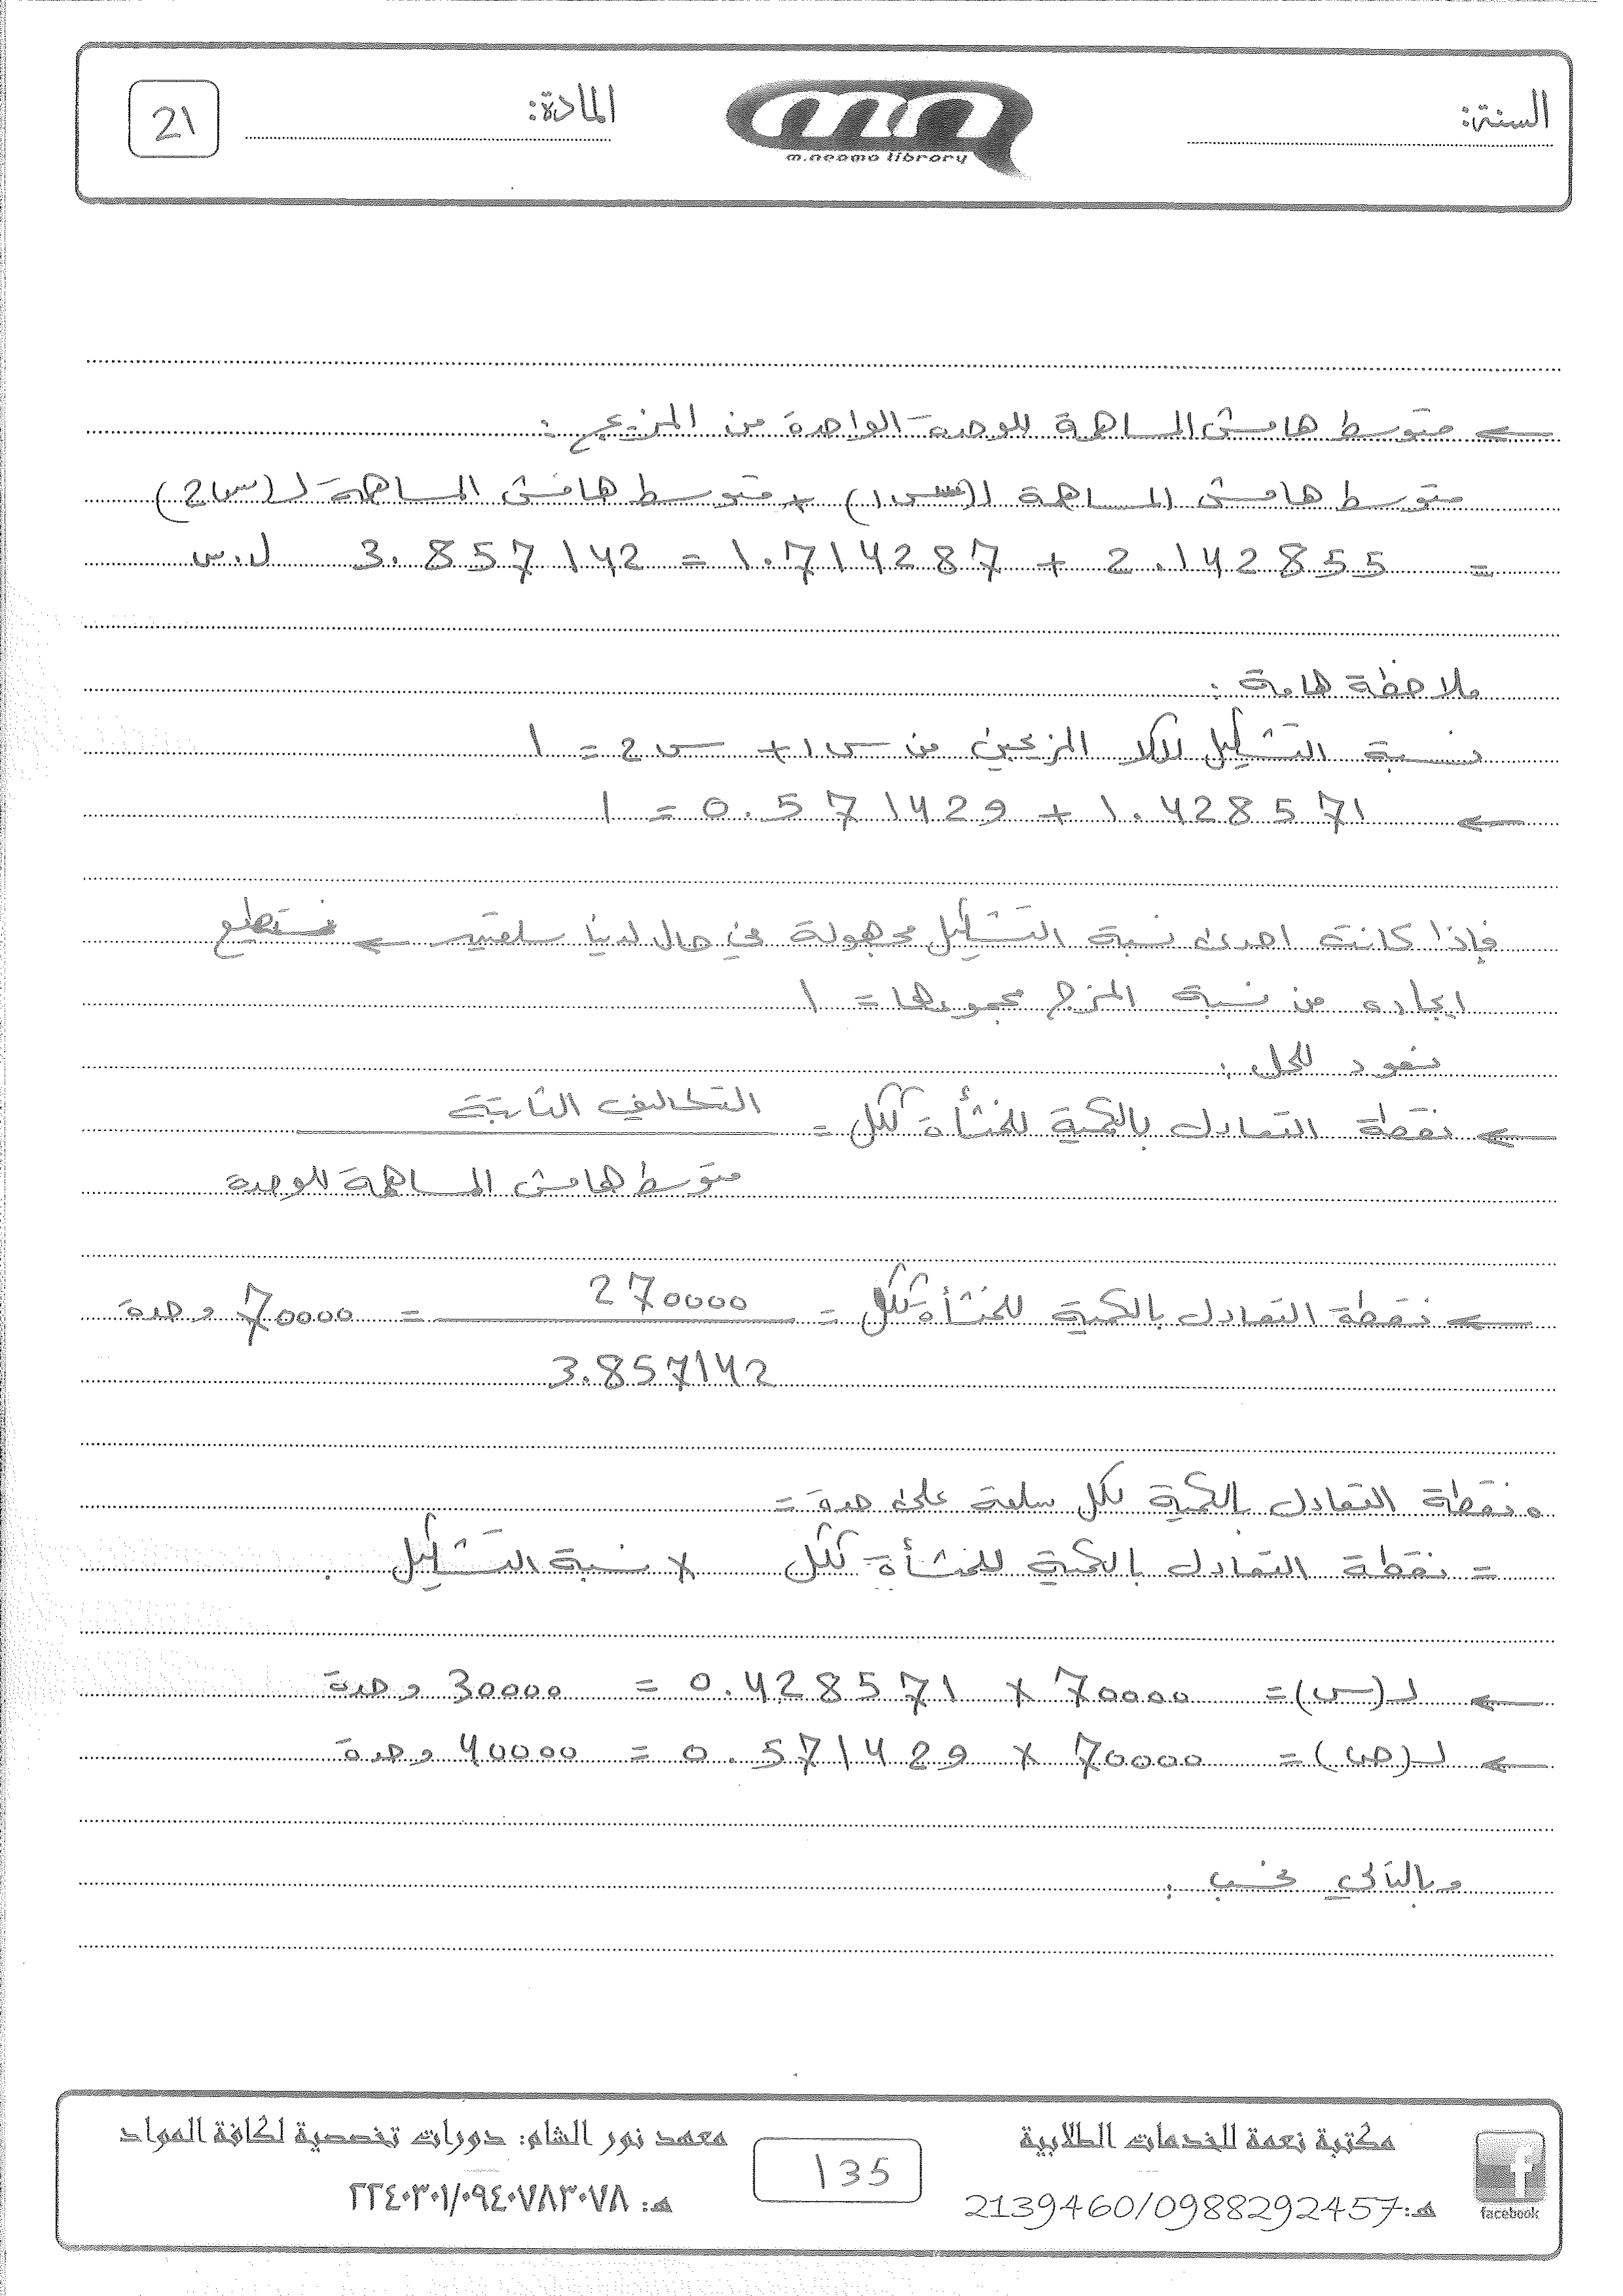 السنة:
m.neama library
المادة:
21
← متوسط هامش المساهمة للوحدة الواحدة من المزيج :
متوسط هامش المساهمة لـ(س1) + متوسط هامش المساهمة لـ(س2)
= 2.142855 + 1.714287 = 3.857142 ل.س
ملاحظة هامة :
نسبة التشكيل لكلا المزيجين من س1 + س2 = 1
← 1.428571 + 0.571429 = 1
فإذا كانت احدى نسبة التشكيل مجهولة في حال لدينا سلعتين ← نستطيع
ايجاده من نسبة المزج مجموعها = 1
نعود للحل :
← نقطة التعادل بالكمية للمنشأة ككل = التكاليف الثابتة
متوسط هامش المساهمة للوحدة
← نقطة التعادل بالكمية للمنشأة ككل = 270000 = 70000 وحدة
3.857142
• نقطة التعادل بالكمية لكل سلعة على حدة =
= نقطة التعادل بالكمية للمنشأة ككل × نسبة التشكيل .
← لـ(س) = 70000 × 0.428571 = 30000 وحدة
← لـ(ص) = 70000 × 0.571429 = 40000 وحدة
وبالتالي نحسب :
facebook
مكتبة نعمة للخدمات الطلابية
هـ: 2139460/0988292457
135
معهد نور الشام: دورات تخصصية لكافة المواد
هـ: ٢٢٤٠٣٠١/٠٩٤٠٧٨٣٠٧٨